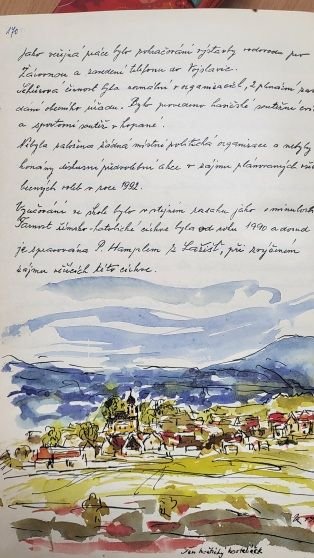 170
Jako veřejná práce bylo pokračování výstavby vodovodu pro
a zavedení telefonu do Vojslavic.
činnost byla normální v organisacích, 2 plenární
dání obecního úřadu. Bylo provedeno hasičské soutěžní
a sportovní soutěž v kopané.
Nebyla založena žádná místní politická organisace a nebyly
konány diskusní předvolební akce v zájmu plánovaných
becných voleb v roce 1992.
Vyučování ve škole bylo v stejném rozsahu jako v minulosti
Farnost římsko-katolické církve byla od roku 1990 a dosud
je spravována P. Hamplem z Lažišť, při zvýšeném
zájmu věřících této církve.
Jan